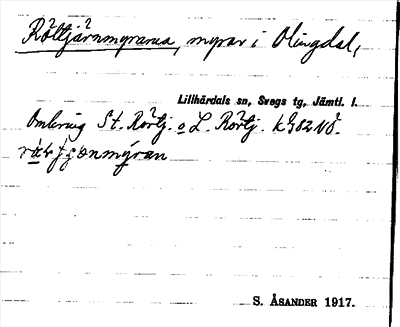 Röltjärnmyrarna, myrar i Olingdal,
Lillhärdals sn, Svegs tg, Jämtl. l.
Omkring St. Rörtj. o L. Rörtj. k 982 NÖ.
S. ÅSANDER 1917.